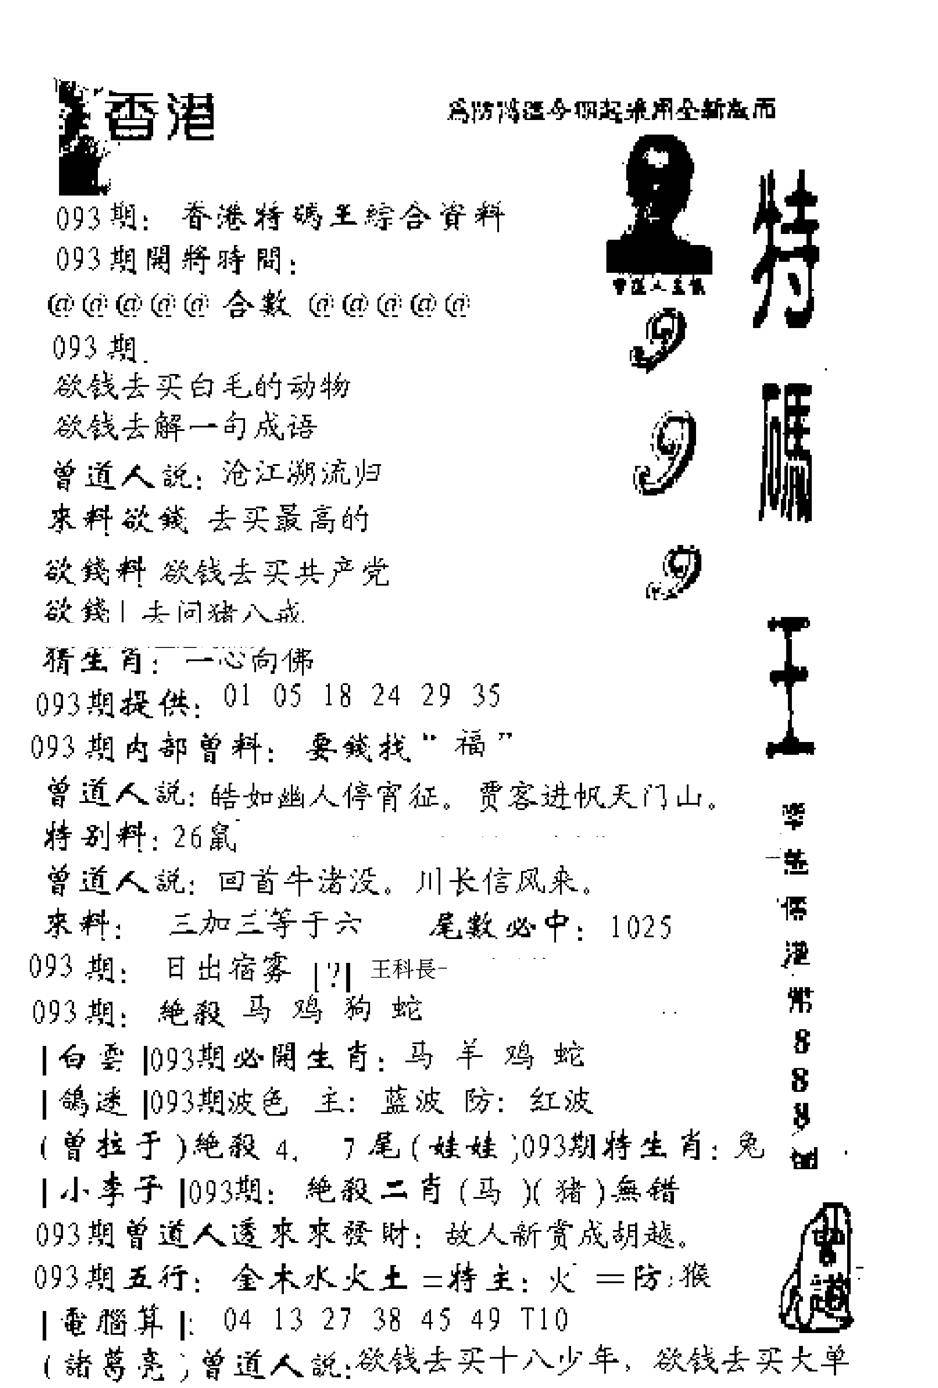 香港
為防偽從今期起采用全新版面
093期：香港特碼王綜合資料
093期開將時間：
曾道人主俵
@@@@@合數@@@@@
093期.
欲钱去买白毛的动物
欲钱去解一句成语
曾道人説：沧江溯流归
來料欲錢 去买最高的
欲錢料 欲钱去买共产党
欲錢| 去问猪八戒
猜生肖：一心向佛
093期提供：01 05 18 24 29 35
093期内部曾料：要錢找“福”
曾道人説：皓如幽人停宵征。贾客进帆天门山。
特别料：26鼠
曾道人説：回首牛渚没。川长信风来。
來料： 三加三等于六 尾數必中：1025
093期：日出宿雾 |?| 王科長-
093期：絶殺 马 鸡 狗 蛇
|白雲|093期必開生肖：马 羊 鸡 蛇
|鴿迷|093期波色 主：蓝波 防：紅波
(曾拉于)絶殺 4. 7尾(娃娃)093期特生肖：兔
|小李子|093期：絶殺二肖(马)(猪)無错
093期曾道人透來來發財：故人新赏成胡越。
093期五行：金木水火土=特主：火=防:猴
|電腦算|：04 13 27 38 45 49 T10
(諸葛亮)曾道人説：欲钱去买十八少年，欲钱去买大单
特碼王
999
888
曾道